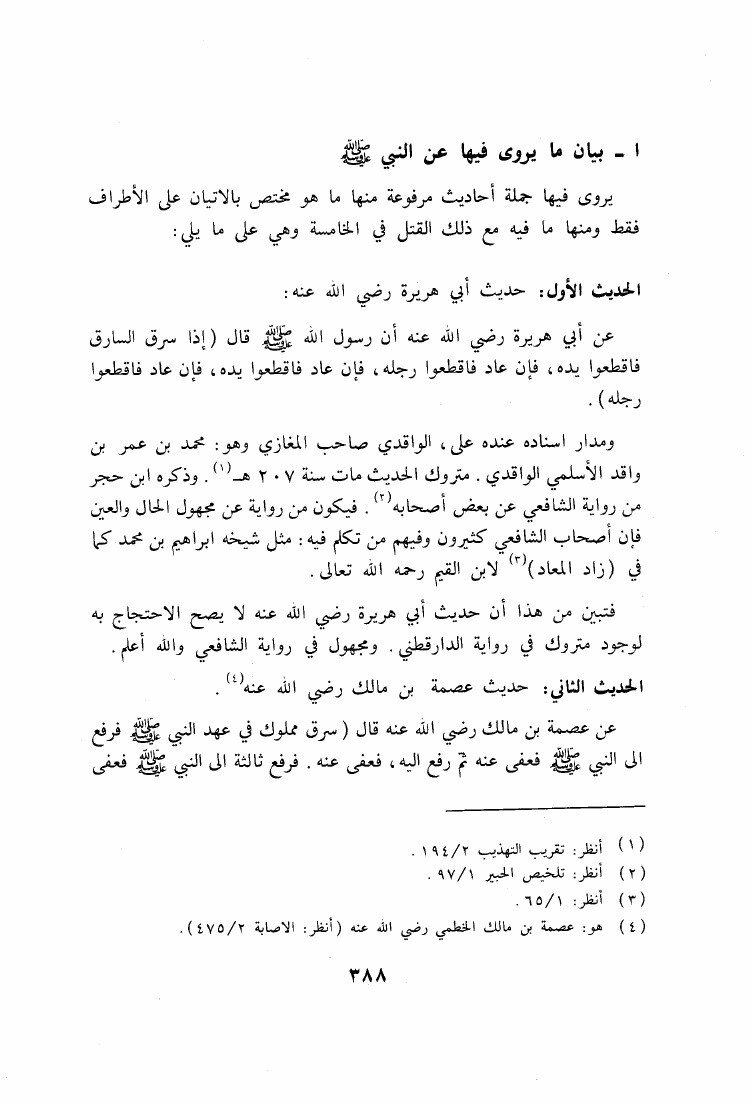 ١ - بيان ما يروى فيها عن النبي ﷺ
يروى فيها جملة أحاديث مرفوعة منها ما هو مختص بالاتيان على الأطراف
فقط ومنها ما فيه مع ذلك القتل في الخامسة وهي على ما يلي:
الحديث الأول: حديث أبي هريرة رضي الله عنه:
عن أبي هريرة رضي الله عنه أن رسول الله ﷺ قال (إذا سرق السارق
فاقطعوا يده، فإن عاد فاقطعوا رجله، فإن عاد فاقطعوا يده، فإن عاد فاقطعوا
رجله).
ومدار اسناده عنده على، الواقدي صاحب المغازي وهو: محمد بن عمر بن
واقد الأسلمي الواقدي. متروك الحديث مات سنة ٢٠٧ هـ(١). وذكره ابن حجر
من رواية الشافعي عن بعض أصحابه(٢). فيكون من رواية عن مجهول الحال والعين
فإن أصحاب الشافعي كثيرون وفيهم من تكلم فيه: مثل شيخه ابراهيم بن محمد كما
في (زاد المعاد)(٣) لابن القيم رحمه الله تعالى.
فتبين من هذا أن حديث أبي هريرة رضي الله عنه لا يصح الاحتجاج به
لوجود متروك في رواية الدارقطني. ومجهول في رواية الشافعي والله أعلم.
الحديث الثاني: حديث عصمة بن مالك رضي الله عنه(٤).
عن عصمة بن مالك رضي الله عنه قال (سرق مملوك في عهد النبي ﷺ فرفع
الى النبي ﷺ فعفى عنه ثم رفع اليه، فعفى عنه. فرفع ثالثة الى النبي ﷺ فعفى
(١) أنظر: تقريب التهذيب ١٩٤/٢.
(٢) أنظر: تلخيص الحبير ٩٧/١.
(٣) أنظر: ٦٥/١.
(٤) هو: عصمة بن مالك الخطمي رضي الله عنه (أنظر: الاصابة ٤٧٥/٢).
٣٨٨